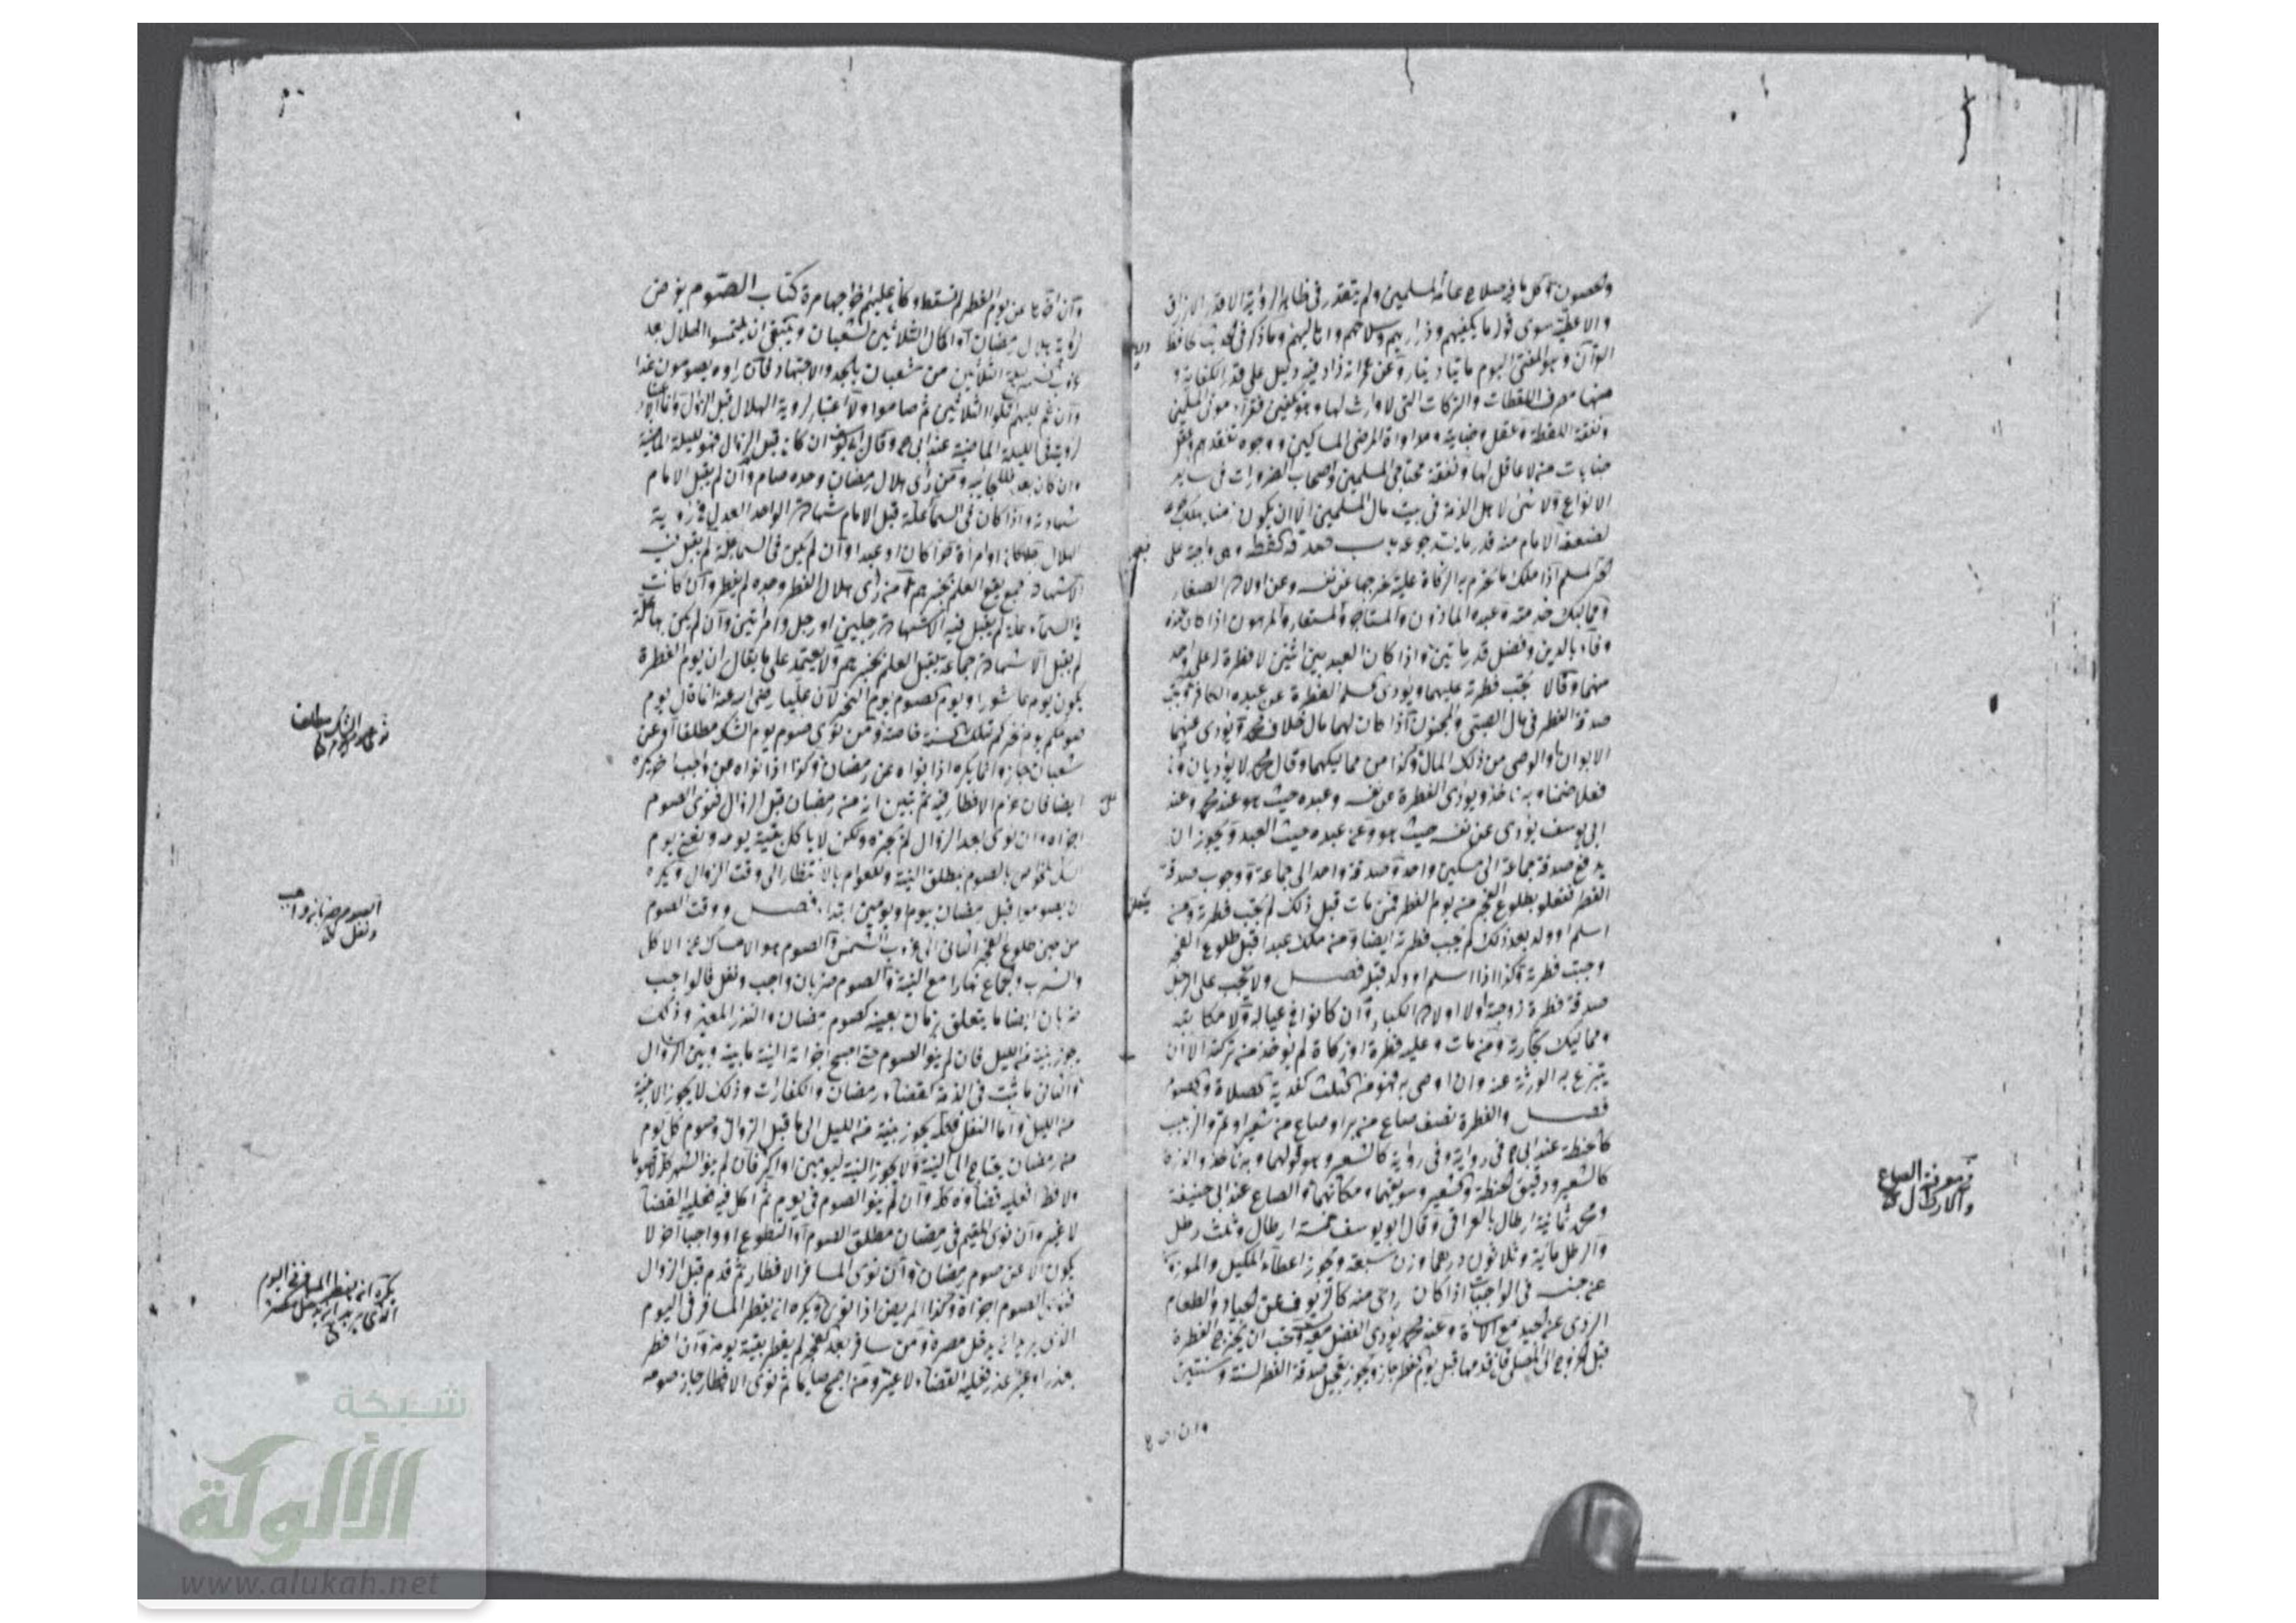 والحصون وكل ما فيه صلاح عامة المسلمين ولم يتقدر في ظاهر الرواية الا قدر الارزاق
والاعطية سوى قوله ما يكفيهم وذراريهم وسلاحهم واهاليهم وما ذكر في الحديث لحافظ
القرآن وهو المفتي اليوم مايتا دينار وعن عمر انه زاد فيه دليل على قدر الكفاية و
منها مصرف اللقطات والتركات التي لا وارث لها وهو تكفين فقراء موتى المسلمين
ونفقة اللقطة وعقل جناية ومداواة المرضى المساكين ووجوه نفقدهم وعقل
جنايات من لا عاقل لها ونفقة محتاجي المسلمين واصحاب الضرورات في ساير
الانواع ولا شئ لاهل الذمة في بيت مال المسلمين الا ان يكون ذميا يهلك جوعا
لضعفه الامام منه قدر ما يسد جوعه باب صدقة الفطر وهي واجبة على
الحر المسلم اذا ملك ما تحرم به الزكاة عليه يخرجها عن نفسه وعن اولاده الصغار
ومماليك خدمته وعبده الماذون والمستاجر والمستعار والمرهون اذا كان عنده
وفاء بالدين وفضل قدر مايتين واذا كان العبد بين اثنين لا فطرة له على واحد
منهما وقالا تجب فطرته عليهما ويؤدي المسلم الفطرة عن عبده الكافر وتجب
صدقة الفطر في مال الصبي والمجنون اذا كان لهما مال خلافا لمحمد ويؤدي عنهما
الابوان والوصي من ذلك المال وكذا من مماليكهما وقال محمد لا يؤديان وان
فعلا ضمنا وبه ناخذ ويؤدي الفطرة عن نفسه وعبده حيث هو عند محمد وعند
ابي يوسف يؤدي عن نفسه حيث هو وعن عبده حيث العبد ويجوز ان
يدفع صدقة جماعة الى مسكين واحد وصدقة واحد الى جماعة ووجوب صدقة
الفطر متعلق بطلوع الفجر من يوم الفطر فمن مات قبل ذلك لم تجب فطرته ومن
اسلم او ولد بعد ذلك لم تجب فطرته ايضا ومن ملك عبدا قبل طلوع الفجر
وجبت فطرته وكذا اذا اسلم او ولد قبله فصل ولا تجب على الرجل
صدقة فطرة زوجته ولا اولاده الكبار وان كانوا في عياله ولا مكاتبه
ومماليك تجارته ومن مات وعليه فطرة او زكاة لم يؤخذ من تركته الا ان
يتبرع به الورثة عنه وان اوصى به فهو من الثلث كفدية الصلاة والصوم
فصل والفطرة نصف صاع من بر او صاع من شعير او تمر والزبيب
كالحنطة عند ابي ح في رواية وفي رواية كالشعير وهو قولهما وبه ناخذ والذرة
كالشعير ودقيق الحنطة والشعير وسويقهما مكانهما والصاع عند ابي حنيفة
ومحمد ثمانية ارطال بالعراقي وقال ابو يوسف خمسة ارطال وثلث رطل
والرطل مائة وثلاثون درهما وزن سبعة ويجوز اعطاء المكيل والموزون
عن جنسه في الواجبات اذا كان ردي منه كالزيوف عن الجياد والطعام
الردي عن الجيد مع الاساءة وعند محمد يؤدي الفضل معه ويستحب ان يخرج الفطرة
قبل الخروج الى المصلى فان قدمها قبل يوم الفطر جاز ويجوز تعجيل صدقة الفطر لسنة وسنتين
وان اخر
في معرفة الصاع
والارطال
وان اخرها عن يوم الفطر لم تسقط وكان عليهم اخراجها مرة كتاب الصوم يفرض
لرؤية هلال رمضان او اكمال الثلاثين لشعبان وينبغي ان يلتمسوا الهلال بعد
غروب شمس ليلة الثلاثين من شعبان بالجد والاجتهاد فان راوه يصومون غدا
وان غم عليهم اكملوا الثلاثين ثم صاموا ولا اعتبار لروية الهلال قبل الزوال
لرؤيته في الليلة الماضية عند ابي ح وقال ابو يوسف ان كان قبل الزوال فهو لليلة الماضية
وان كان بعده فللجائية ومن رأى هلال رمضان وحده صام وان لم يقبل الامام
شهادته واذا كان في السماء علة قبل الامام شهادة الواحد العدل في رؤية
الهلال رجلا كان او امرأة حرا كان او عبدا وان لم يكن في السماء علة لم يقبل فيه
الا شهادة جمع يقع العلم بخبرهم ومن رأى هلال الفطر وحده لم يفطر وان كانت
في السماء علة لم يقبل فيه الا شهادة رجلين او رجل وامرأتين وان لم يكن بها علة
لم يقبل الا شهادة جماعة يقبل العلم بخبرهم ولا يعتمد على ما يقال ان يوم الفطرة
يكون يوم عاشورا ويوم الصوم يوم النحر لان عليا رضي الله عنه انما قال يوم
صومكم يوم نحركم تلك السنة خاصة ومن نوى صوم يوم الشك مطلقا او عن
شعبان جاز وانما يكره اذا نواه عن رمضان وكذا اذا نواه عن واجب اخر يكره
ايضا فان عزم الافطار فيه ثم تبين انه من رمضان قبل الزوال فنوى الصوم
اجزاه وان نوى بعد الزوال لم يجزه ولكن لا ياكل بقية يومه ويفتى يوم
الشك الخواص بالصوم بمطلق النية وللعوام بالانتظار الى وقت الزوال ويكره
ان يصوموا قبل رمضان بيوم او يومين ابتداء فصل ووقت الصوم
من حين طلوع الفجر الثاني الى غروب الشمس والصوم هو الامساك عن الاكل
والشرب والجماع نهارا مع النية والصوم ضربان واجب ونفل فالواجب
ضربان ايضا ما يتعلق بزمان بعينه كصوم رمضان والنذر المعين وذلك
يجوز بنية من الليل فان لم ينو الصوم حتى اصبح اجزاته النية ما بينه وبين الزوال
والثاني ما ثبت في الذمة كقضاء رمضان والكفارات وذلك لا يجوز الا بنية
من الليل واما النفل فكله يجوز بنية من الليل الى ما قبل الزوال وصوم كل يوم
من رمضان يحتاج الى النية ولا يجوز النية ليومين او اكثر فان لم ينو الشهر كله
ولا فطرا فعليه قضاؤه كله وان لم ينو الصوم في يوم ثم اكل فيه فعليه القضاء
لا غير وان نوى المقيم في رمضان مطلق الصوم او التطوع او واجبا اخر لا
يكون الا عن صوم رمضان وان نوى المسافر الافطار ثم قدم قبل الزوال
فنوى الصوم اجزاه وكذا المريض اذا نوى ويكره ان يفطر المسافر في اليوم
الذي يريد ان يدخل مصره ومن سافر بعد الفجر لم يفطر بقية يومه وان افطر
بعذر او غير عذر فعليه القضاء لا غير ومن اصبح صايما ثم نوى الافطار جاز صومه
نوى صوم يوم الشك مطلقا
الصوم ضربان واجب
ونفل
يكره ان يفطر المسافر في اليوم
الذي يريد ان يدخل مصره
شبكة
الألوكة
www.alukah.net